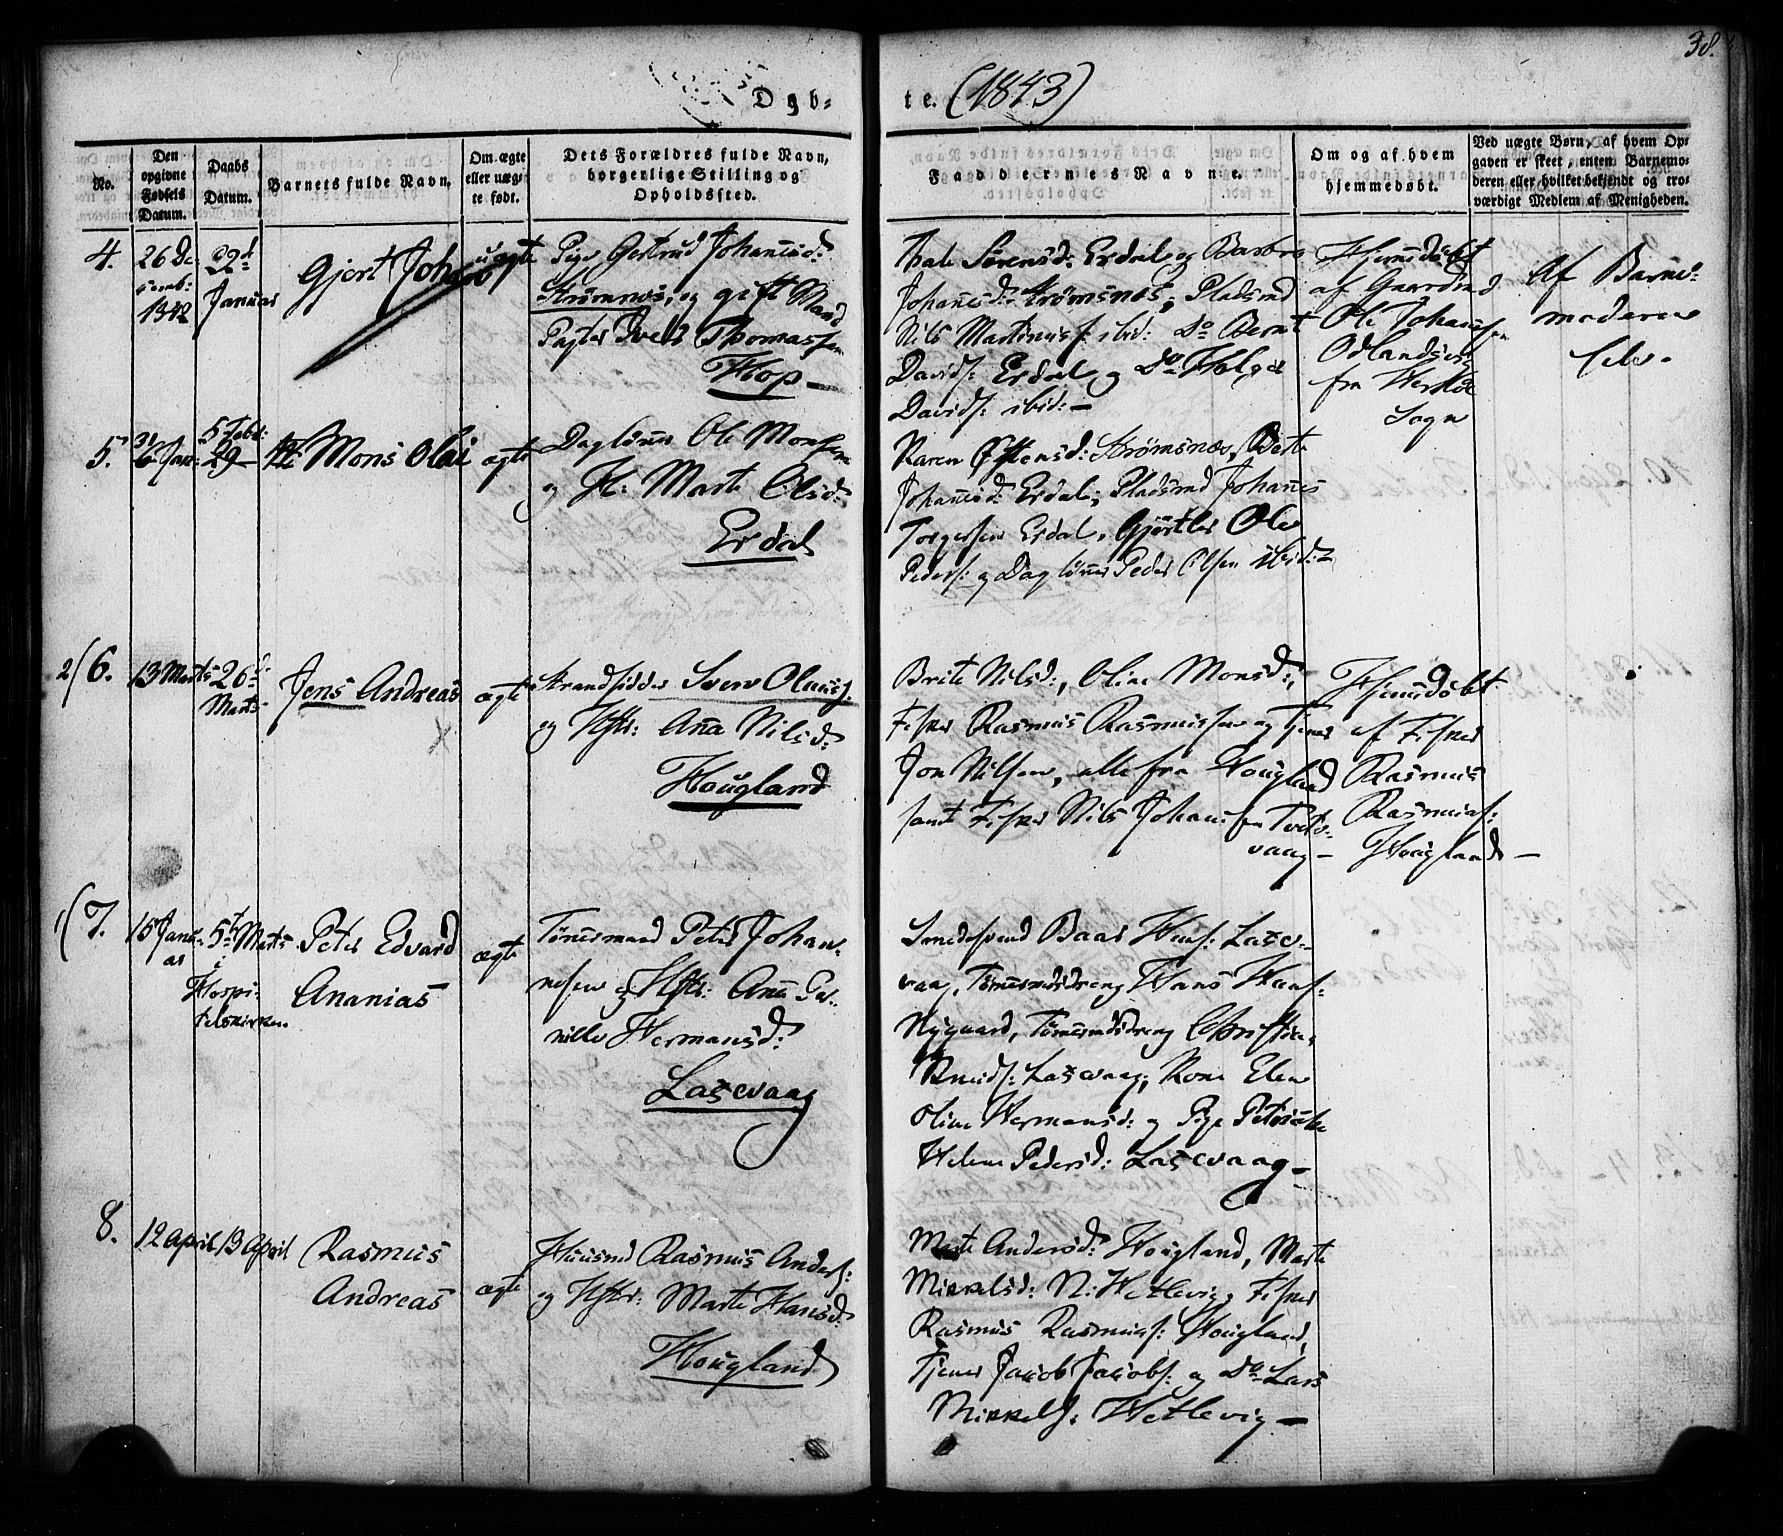 38.
Døb-
te. (1843)
No.
Den opgivne Fødsels Datum.
Daabs Datum.
Barnets fulde Navn.
Om ægte eller uægte født.
Dets Forældres fulde Navn, borgerlige Stilling og Opholdssted.
Faddernes Navne.
Om og af hvem hjemmedøbt.
Ved uægte Børn, af hvem Opgaven er skeet, enten Barnemoderen eller hvilket bekjendt og troværdigt Medlem af Menigheden.
4.
26 De-
cemb:
1842
Januar
Gjert Johan
uægte
Pige Gertrud Johannisd:
og gift Mand
Thomassen
Hop
Sørensd: Erdal og Barbro
Johannesd: Strømsnes, Pladsmd
Nils Martinuss: ibid: Do Bernt
Davids: Erdal og Do Holger
Davids: ibid:
Hjemmedøbt
af Gaardmd
Ole Johannessen
Odlandsvi
fra
Sogn
Af Barne-
moderen
selv.
5.
31 Jan:
5 Febr:
29
Mons Olai
ægte
Daglønner Ole Monssen
og H: Marte Olsd:
Erdal
Karen Strømsnæs, Berte
Johannesd: Erdal; Pladsmd Johannes
Torgersen Erdal, Gjørtler Ole
Peders: og Daglønner Peder Olsen ibid:
2/6.
13 Marts
26d
Marts
Jens Andreas
ægte
Strandsidder Sven Olauss:
og Hstr: Anna Nilsd:
Hougland
Brite Nilsd:, Oline Monsd:,
Fisker Rasmus Rasmussen og Tjener
Jon Nilsen, alle fra Hougland
samt Fisker Nils Johannessen Tveits-
vaag
Hjemmedøbt
af Fisker
Rasmus
Rasmuss:
Hougland
1/7.
15 Janu-
ar
5te Marts
i
Hospi-
talskirken.
Peter Edvard
Ananias
ægte
Tønnesmand Peter Johan-
nesen og Hstr: Anne Per-
nille Hermansd:
Laxevaag
Smedesvend Baar Hans: Laxe-
vaag, Tønnesmdsdreng Hans Hans:
Nygaard, Tønnesmdsdreng Christian
Knuds: Laxevaag; Kone Elen
Oline Hermansd: og Pige Petrine
Helene Pedersd: Laxevaag
8.
12 April
13 April
Rasmus
Andreas
ægte
Huusmd Rasmus Anders:
og Hstr: Marte Hansd:
Hougland
Marte Andersd: Hougland, Marte
Mikkelsd: N: Hetlevig, Fisker
Rasmus Rasmuss: Hougland,
Tjener Jacob Jacobs: og Do Lars
Mikkels: Hetlevig